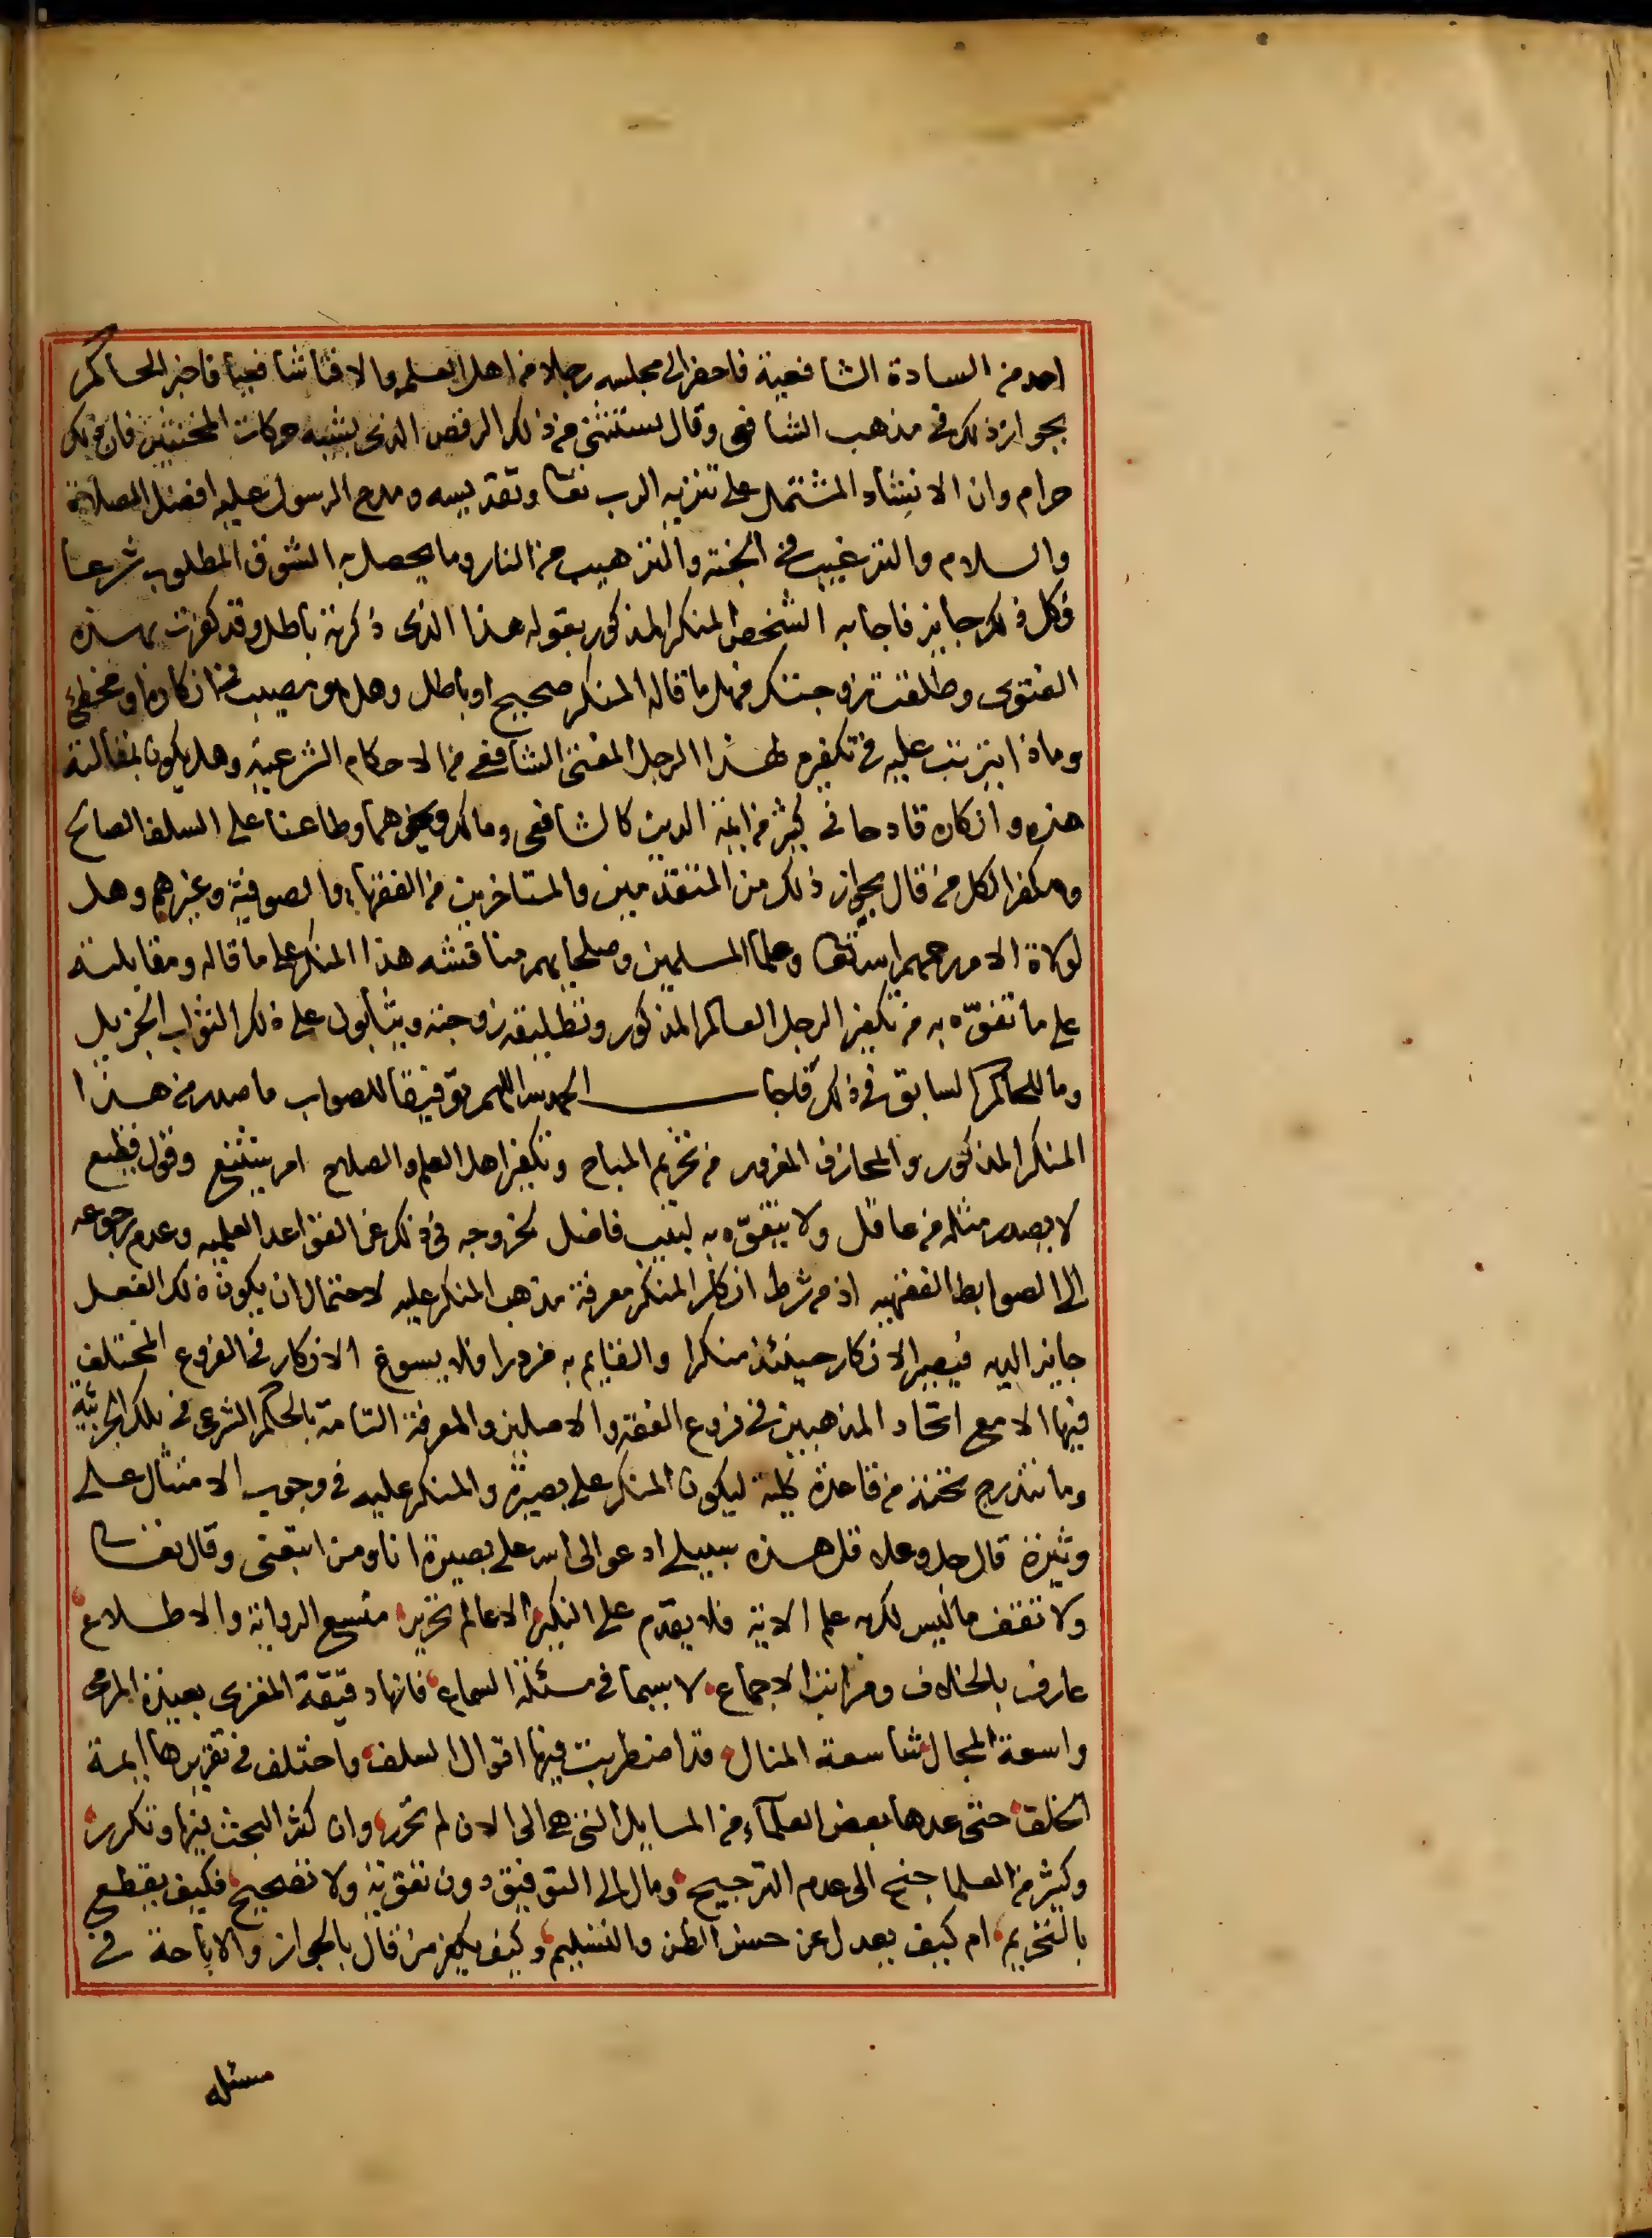 احد من السادة الشافعية فاحضر الى مجلسه رجلا من اهل العلم والافتا شافعيا فاخبر الحاكم
بجواز ذلك في مذهب الشافعي وقال يستثنى من ذلك الرقص الذي يشبه حركات المخنثين فان ذلك
حرام وان الانشاد المشتمل على تنزيه الرب تعا وتقديسه ومدح الرسول عليه افضل الصلاة
والسلام والترغيب في الجنة والترهيب من النار وما يحصل به الشوق المطلوب شرعا
فكل ذلك جايز فاجابه الشخص المنكر المذكور بقوله هذا الذي ذكرته باطل وقد كفرت بهذه
الفتوى وطلقت زوجتك فهل ما قاله المنكر صحيح او باطل وهل هو مصيب في انكاره او مخطئ
وماذا يترتب عليه في تكفيره لهذا الرجل المفتي الشافعي من الاحكام الشرعية وهل يكون بمقالته
هذه وانكاره قادحا في كثير من ايمة الدين كالشافعي ومالك وغيرهما وطاعنا على السلف الصالح
ومكفرا لكل من قال بجواز ذلك من المتقدمين والمتاخرين من الفقهاء والصوفية وغيرهم وهل
لولاة الامور رحمهم الله تعا وعلما المسلمين وصلحايهم مناقشه هذا المنكر على ما قاله ومقابلته
على ما تفوّه به من تكفير الرجل العالم المذكور وتطليقه زوجته ويثابون على ذلك الثواب الجزيل
وما للحاكم السابق في ذلك فاجاب الحمد لله اللهم توفيقا للصواب ما صدر من هذا
المنكر المذكور والمجازف المغرور من تحريم المباح وتكفير اهل العلم والصلاح امر شنيع وقول فظيع
لا يصدر مثله من عاقل ولا يتفوّه به لبيب فاضل لخروجه في ذلك عن القواعد العلميه وعدم رجوعه
الى الضوابط الفقهيه اذ من شرط انكار المنكر معرفة مذهب المنكر عليه لاحتمال ان يكون ذلك الفعل
جايز لديه فيصير الانكار حينئذ منكرا والقايم به مزورا فلا يسوغ الانكار في الفروع المختلف
فيها الا مع اتحاد المذهبين في فروع الفقه والاصلين والمعرفة التامة بالحكم الشرعي في تلك الجزئية
وما تندرج تحته من قاعدة كلية ليكون المنكر على بصيرة والمنكر عليه في وجوب الامتثال على
وتيرة قال جل وعلا قل هذه سبيلي ادعوا الى الله على بصيرة انا ومن اتبعني وقال تعا
ولا تقف ما ليس لك به علم الاية فلا يقدم على النكير الا عالم نحرير متسع الرواية والاطلاع
عارف بالخلاف ومراتب الاجماع لا سيما في مسئلة السماع فانها دقيقة المغزى بعيدة المرمى
واسعة المجال شاسعة المنال قد اضطربت فيها اقوال السلف واختلف في تقريرها ايمة
الخلف حتى عدها بعض العلماء من المسايل التي هي الى الان لم تحرر وان كثر البحث فيها وتكرر
وكثير من العلما جنح الى عدم الترجيح ومال الى التوفيق دون تقوية ولا تصحيح فكيف يقطع
بالتحريم ام كيف يعدل عن حسن الظن والتسليم وكيف يكفر من قال بالجواز والاباحة في
مسئله